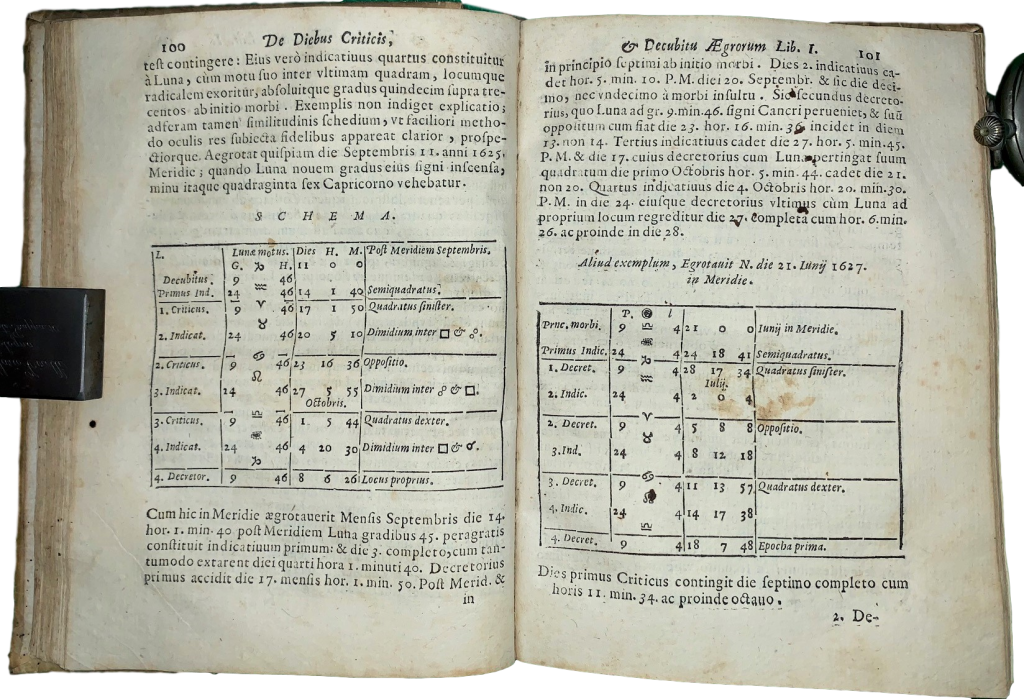 100 De Diebus Criticis,
teſt contingere: Eius verò indicatiuus quartus conſtituitur
à Luna, cùm motu ſuo inter vltimam quadram, locumque
radicalem exoritur, abſoluitque gradus quindecim ſupra tre-
centos ab initio morbi. Exemplis non indiget explicatio;
adferam tamen ſimilitudinis ſchedium, vt faciliori metho-
do oculis res ſubiecta fidelibus appareat clarior, proſpe-
ctiorque. Aegrotat quiſpiam die Septembris 11. anni 1625.
Meridie; quando Luna nouem gradus eius ſigni inſcenſa,
minu itaque quadraginta ſex Capricorno vehebatur.
S C H E M A.
L. Lunæ motus. Dies H. M. Poſt Meridiem Septembris.
G. ♑ H. 11 0 0
Decubitus. 9 46
Primus Ind. 24 ♒ 46 14 1 40 Semiquadratus.
1. Criticus. 9 ♈ 46 17 1 50 Quadratus ſiniſter.
2. Indicat. 24 ♉ 46 20 5 10 Dimidium inter □ & ☍.
2. Criticus. 9 ♋ 46 23 16 36 Oppoſitio.
3. Indicat. 24 ♌ 46 27 5 55 Dimidium inter ☍ & □.
Octobris.
3. Criticus. 9 ♎ 46 1. 5 44 Quadratus dexter.
4. Indicat. 24 46 4 20 30 Dimidium inter □ & ☌.
♑
4. Decretor. 9 46 8 6 26 Locus proprius.
Cum hic in Meridie ægrotauerit Menſis Septembris die 14.
hor. 1. min. 40 poſt Meridiem Luna gradibus 45. peragratis
conſtituit indicatiuum primum: & die 3. completo, cum tan-
tumodo extarent diei quarti hora 1. minuti 40. Decretorius
primus accidit die 17. menſis hor. 1. min. 50. Poſt Merid. &
in
& Decubitu Ægrorum Lib. I. 101
in principio ſeptimi ab initio morbi. Dies 2. indicatiuus ca-
det hor. 5. min. 10. P.M. diei 20. Septembr. & ſic die deci-
mo, nec vndecimo à morbi inſultu. Sic ſecundus decreto-
rius, quo Luna ad gr. 9. min. 46. ſigni Cancri perueniet, & ſuū
oppoſitum cum fiat die 23. hor. 16. min. 36 incidet in diem
13. non 14. Tertius indicatiuus cadet die 27. hor. 5. min. 45.
P.M. & die 17. cuius decretorius cum Luna pertingat ſuum
quadratum die primo Octobris hor. 5. min. 44. cadet die 21.
non 20. Quartus indicatiuus die 4. Octobris hor. 20. min. 30.
P.M. in die 24. eiuſque decretorius vltimus cùm Luna ad
proprium locum regreditur die 27. completa cum hor. 6. min.
26. ac proinde in die 28.
Aliud exemplum, Egrotauit N. die 21. Iunij 1627.
in Meridie.
P. l
Prnc. morbi. 9 ♎ 4 21 0 0 Iunij in Meridie.
Primus Indic. 24 4 24 18 41 Semiquadratus.
♑
1. Decret. 9 4 28 17 34 Quadratus ſiniſter.
♒ Iulij.
2. Indic. 24 4 2 0 4
♈
2. Decret. 9 4 5 8 8 Oppoſitio.
♉
3. Ind. 24 4 8 12 18
♋
3. Decret. 9 4 11 13 57 Quadratus dexter.
♌
4. Indic. 24 4 14 17 38
♎
4. Decret. 9 4 18 7 48 Epocha prima.
Dies primus Criticus contingit die ſeptimo completo cum
horis 11. min. 34. ac proinde octauo.
2. De-